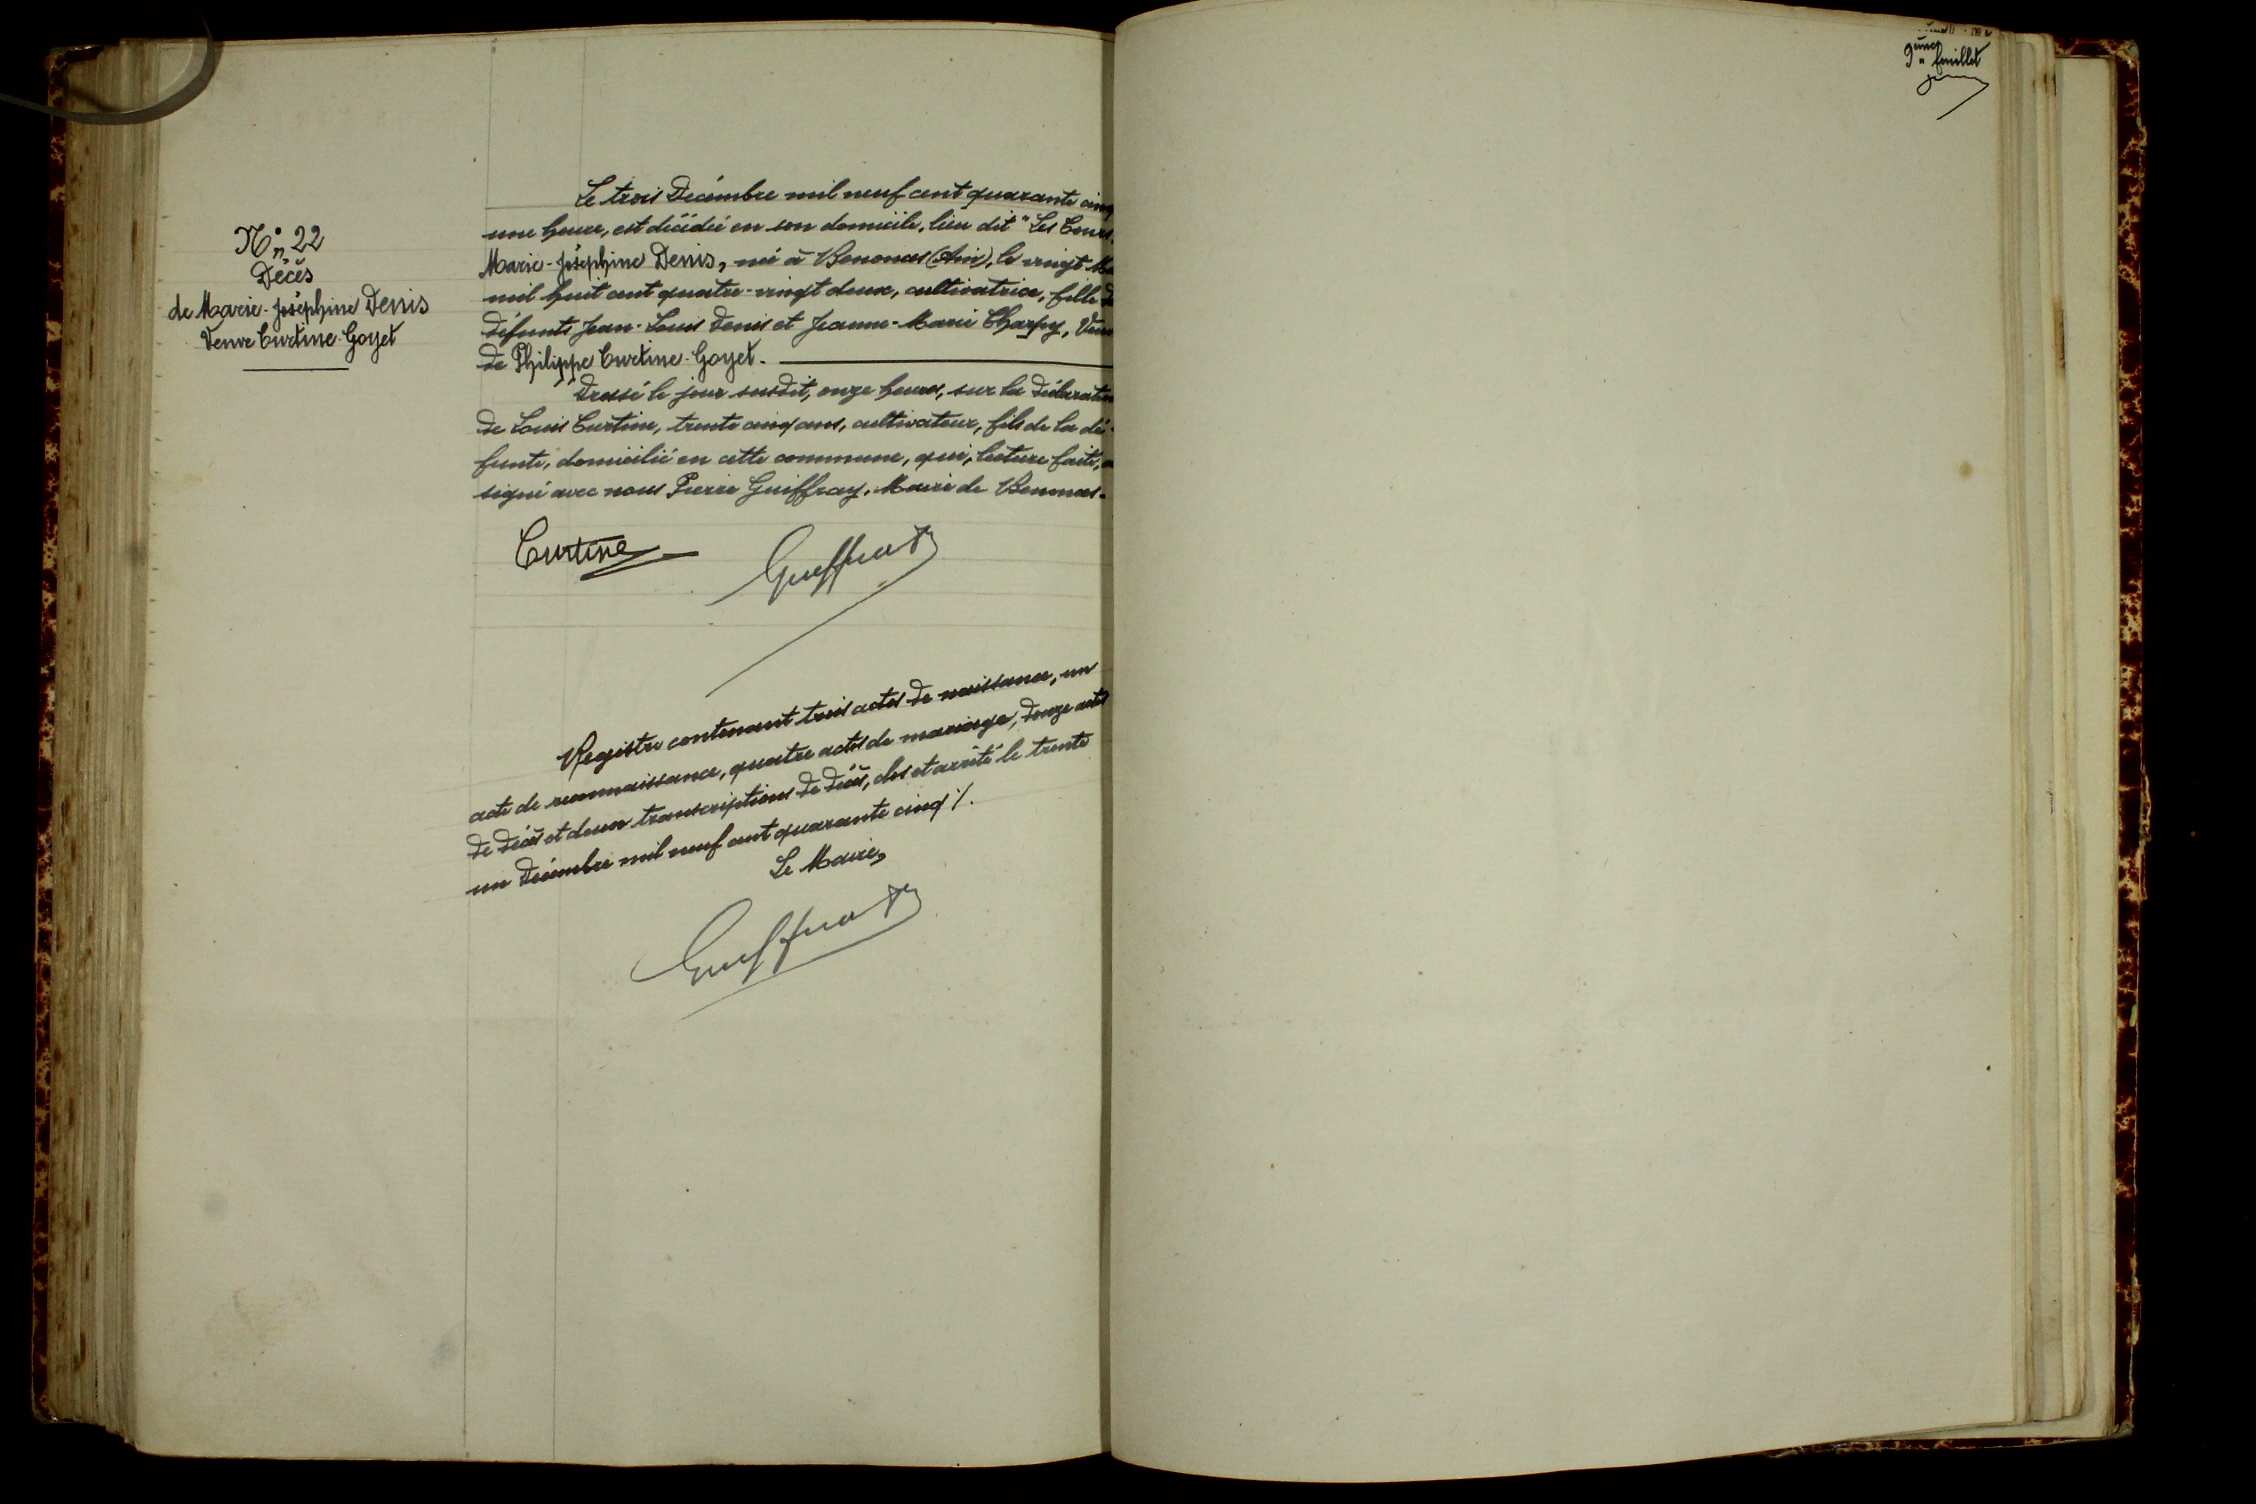 N° 22
Décès
de Marie-Joséphine Denis
Veuve Curtine-Goyet
Le trois Décembre mil neuf cent quarante cinq
une heure, est décédée en son domicile, lieu dit "Les Cours
Marie-Joséphine Denis, née à Benonces (Ain), le vingt
mil huit cent quatre-vingt deux, cultivatrice, fille de
défunts Jean-Louis Denis et Jeanne-Marie Charpy, Veuve
de Philippe Curtine-Goyet.
Dressé le jour susdit, onze heures, sur la déclaration
de Louis Curtine, trente cinq ans, cultivateur, fils de la dé-
funte, domicilié en cette commune, qui, lecture faite, a
signé avec nous Pierre Guiffray, Maire de Benonces.
Curtine
Guiffray
Registre contenant trois actes de naissance, un
acte de reconnaissance, quatre actes de mariage, douze actes
de décès et deux transcriptions de décès, clos et arrêté le trente
un Décembre mil neuf cent quarante cinq %.
Le Maire,
Guiffray
feuillet